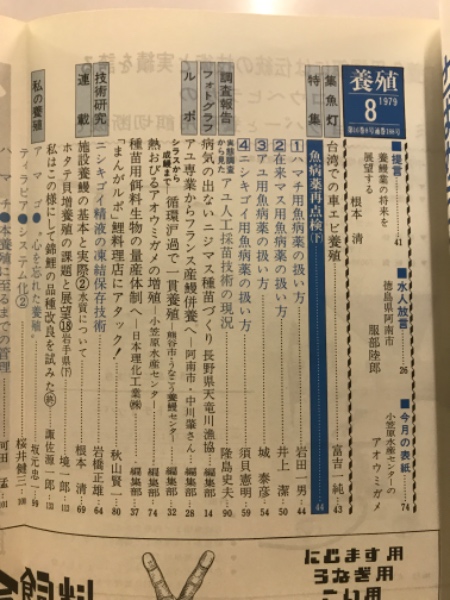 養殖
8
1979
■提言
養鰻業の将来を
展望する
根本 清
41
■水人放言
徳島県阿南市
服部陸郎
26
■今月の表紙
小笠原水産センターの
アオウミガメ
74
集魚灯
台湾での車エビ養殖
富吉一純…43
特集
魚病薬再点検(下)
44
1 ハマチ用魚病薬の扱い方
岩田一男…44
2 在来マス用魚病薬の扱い方
井上 潔…50
3 アユ用魚病薬の扱い方
城 泰彦…54
4 ニシキゴイ用魚病薬の扱い方
須貝憲明…59
調査報告
実態調査から見た アユ人採苗技術の現況
隆島史夫…90
フォトグラフ
病気の出ないニジマス種苗づくり 長野県天竜川漁協
編集部…14
ルポ
アユ専業からフランス産鰻併養へ―阿南市・中川肇さん
編集部…28
シラスから成鰻まで 循環沪過で一貫養殖―熊谷市・うなこう養鰻センター
編集部…32
熱おびるアオウミガメの増殖―小笠原水産センター
編集部…74
種苗用餌料生物の量産体制へ―日本理化工業㈱
編集部…37
「まんがルポ」鯉料理店にアタック!
秋山賢一…80
技術研究
ニシキゴイ精液の凍結保存技術
岩橋正雄…64
連載
施設養鰻の基本と実際② 水質について
根本 清…69
ホタテ貝増養殖の課題と展望⑱ 岩手県(下)
境 一郎…113
私はこの様にして錦鯉の品種改良を試みた㊡
諏佐源一郎…133
私の養殖
アマゴ●〝心を忘れた養殖〟
坂元忠
ティラピア●システム化②
桜井健三
ハマチ●本養殖に至るまでの管理
河田 猛…101
にじます用
うなぎ用
こい用